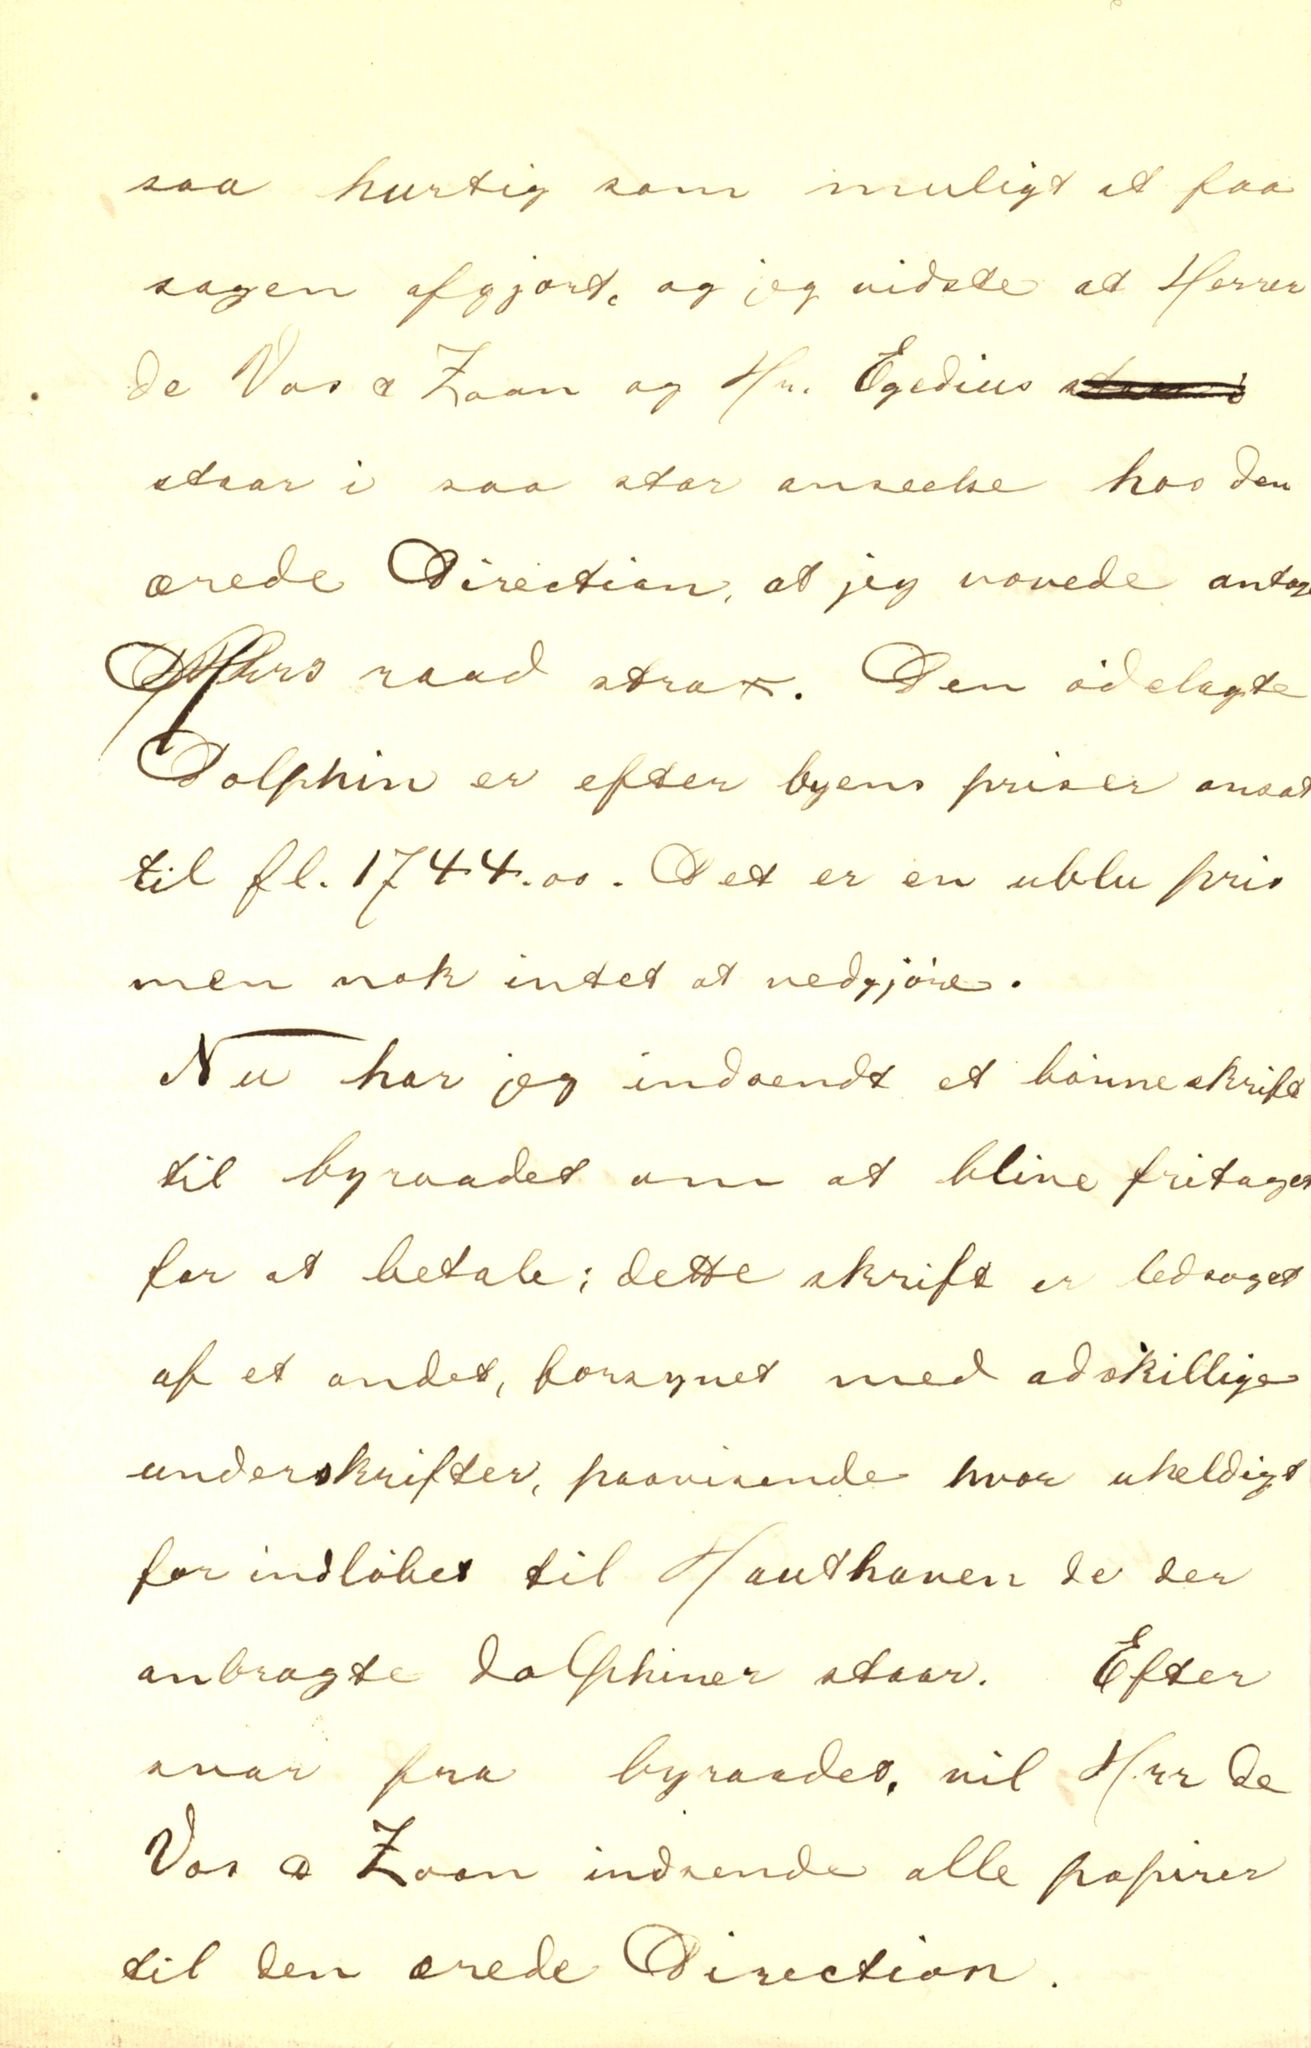 saa hurtig som muligt at faa
sagen afgjort, og jeg vidste at Herrer
de Vos & Zoon og Hr. Egedius staar i
staar i saa stor anseelse hos den
ærede Direction, at jeg vovede antage
raad strax. Den ødelagte
Dolphin er efter byens priser ansat
til fl. 1744.00. Det er en ublu pris
men nok intet at vedgjøre.
Nu har jeg indsendt et bønneskrift
til byraadet om at blive fritaget
for at betale; dette skrift er ledsaget
af et andet, forsynet med adskillige
underskrifter, paavisende hvor uheldigt
for indløbet til Houthaven de der
anbragte dolphiner staar. Efter
svar fra byraadet, vil Hrr de
Vos & Zoon indsende alle papirer
til den ærede Direction.